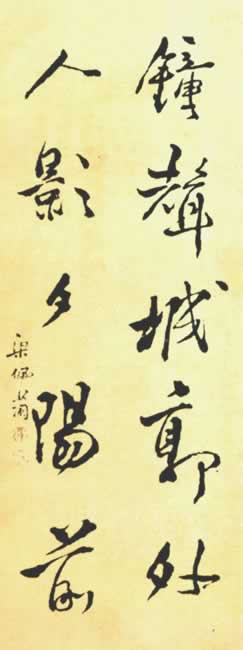 鐘聲城郭外
人影夕陽前
梁佩蘭